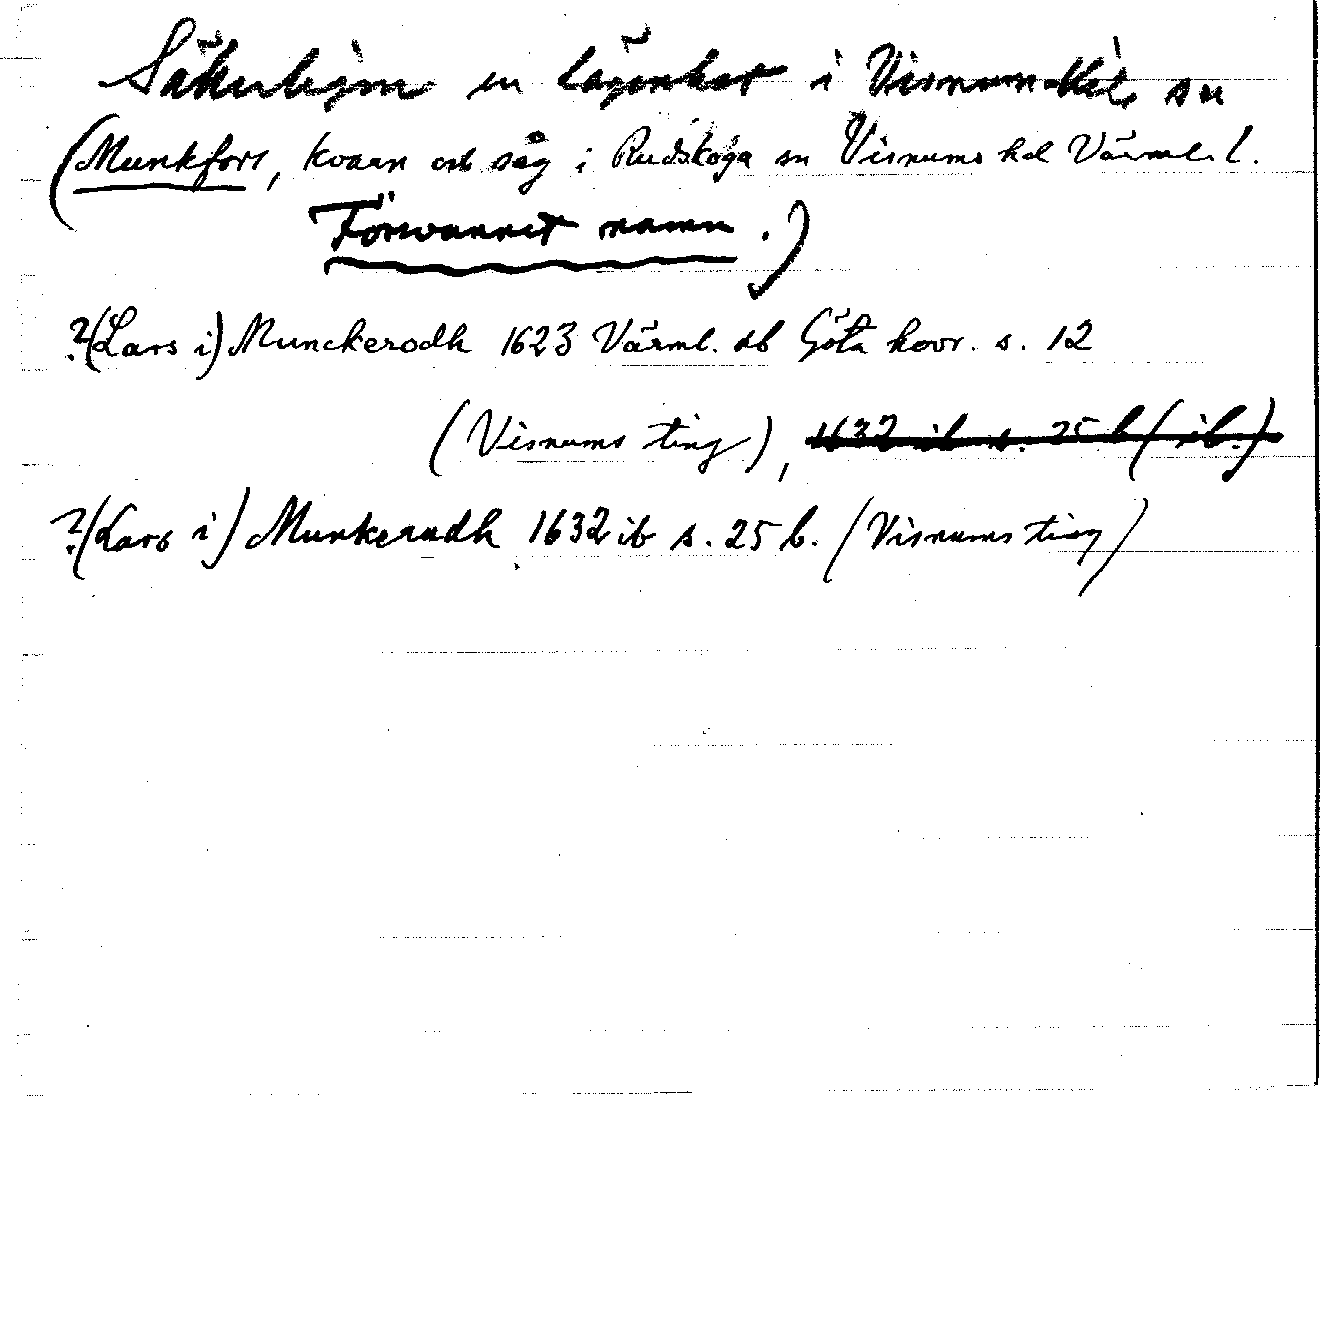 Säkerligen en lägenhet i Visnums-Kil sn
(Munkfors, kvarn och såg i Rudskoga sn Visnums hd Värml. l.
Försvunnet namn.)
?(Lars i) Munckerodh 1623 Värml. db Göta hovr. s. 12
(Visnums ting), 1632 ib s. 25 b (ib.)
?(Lars i) Munkerudh 1632 ib s. 25 b. (Visnums ting)